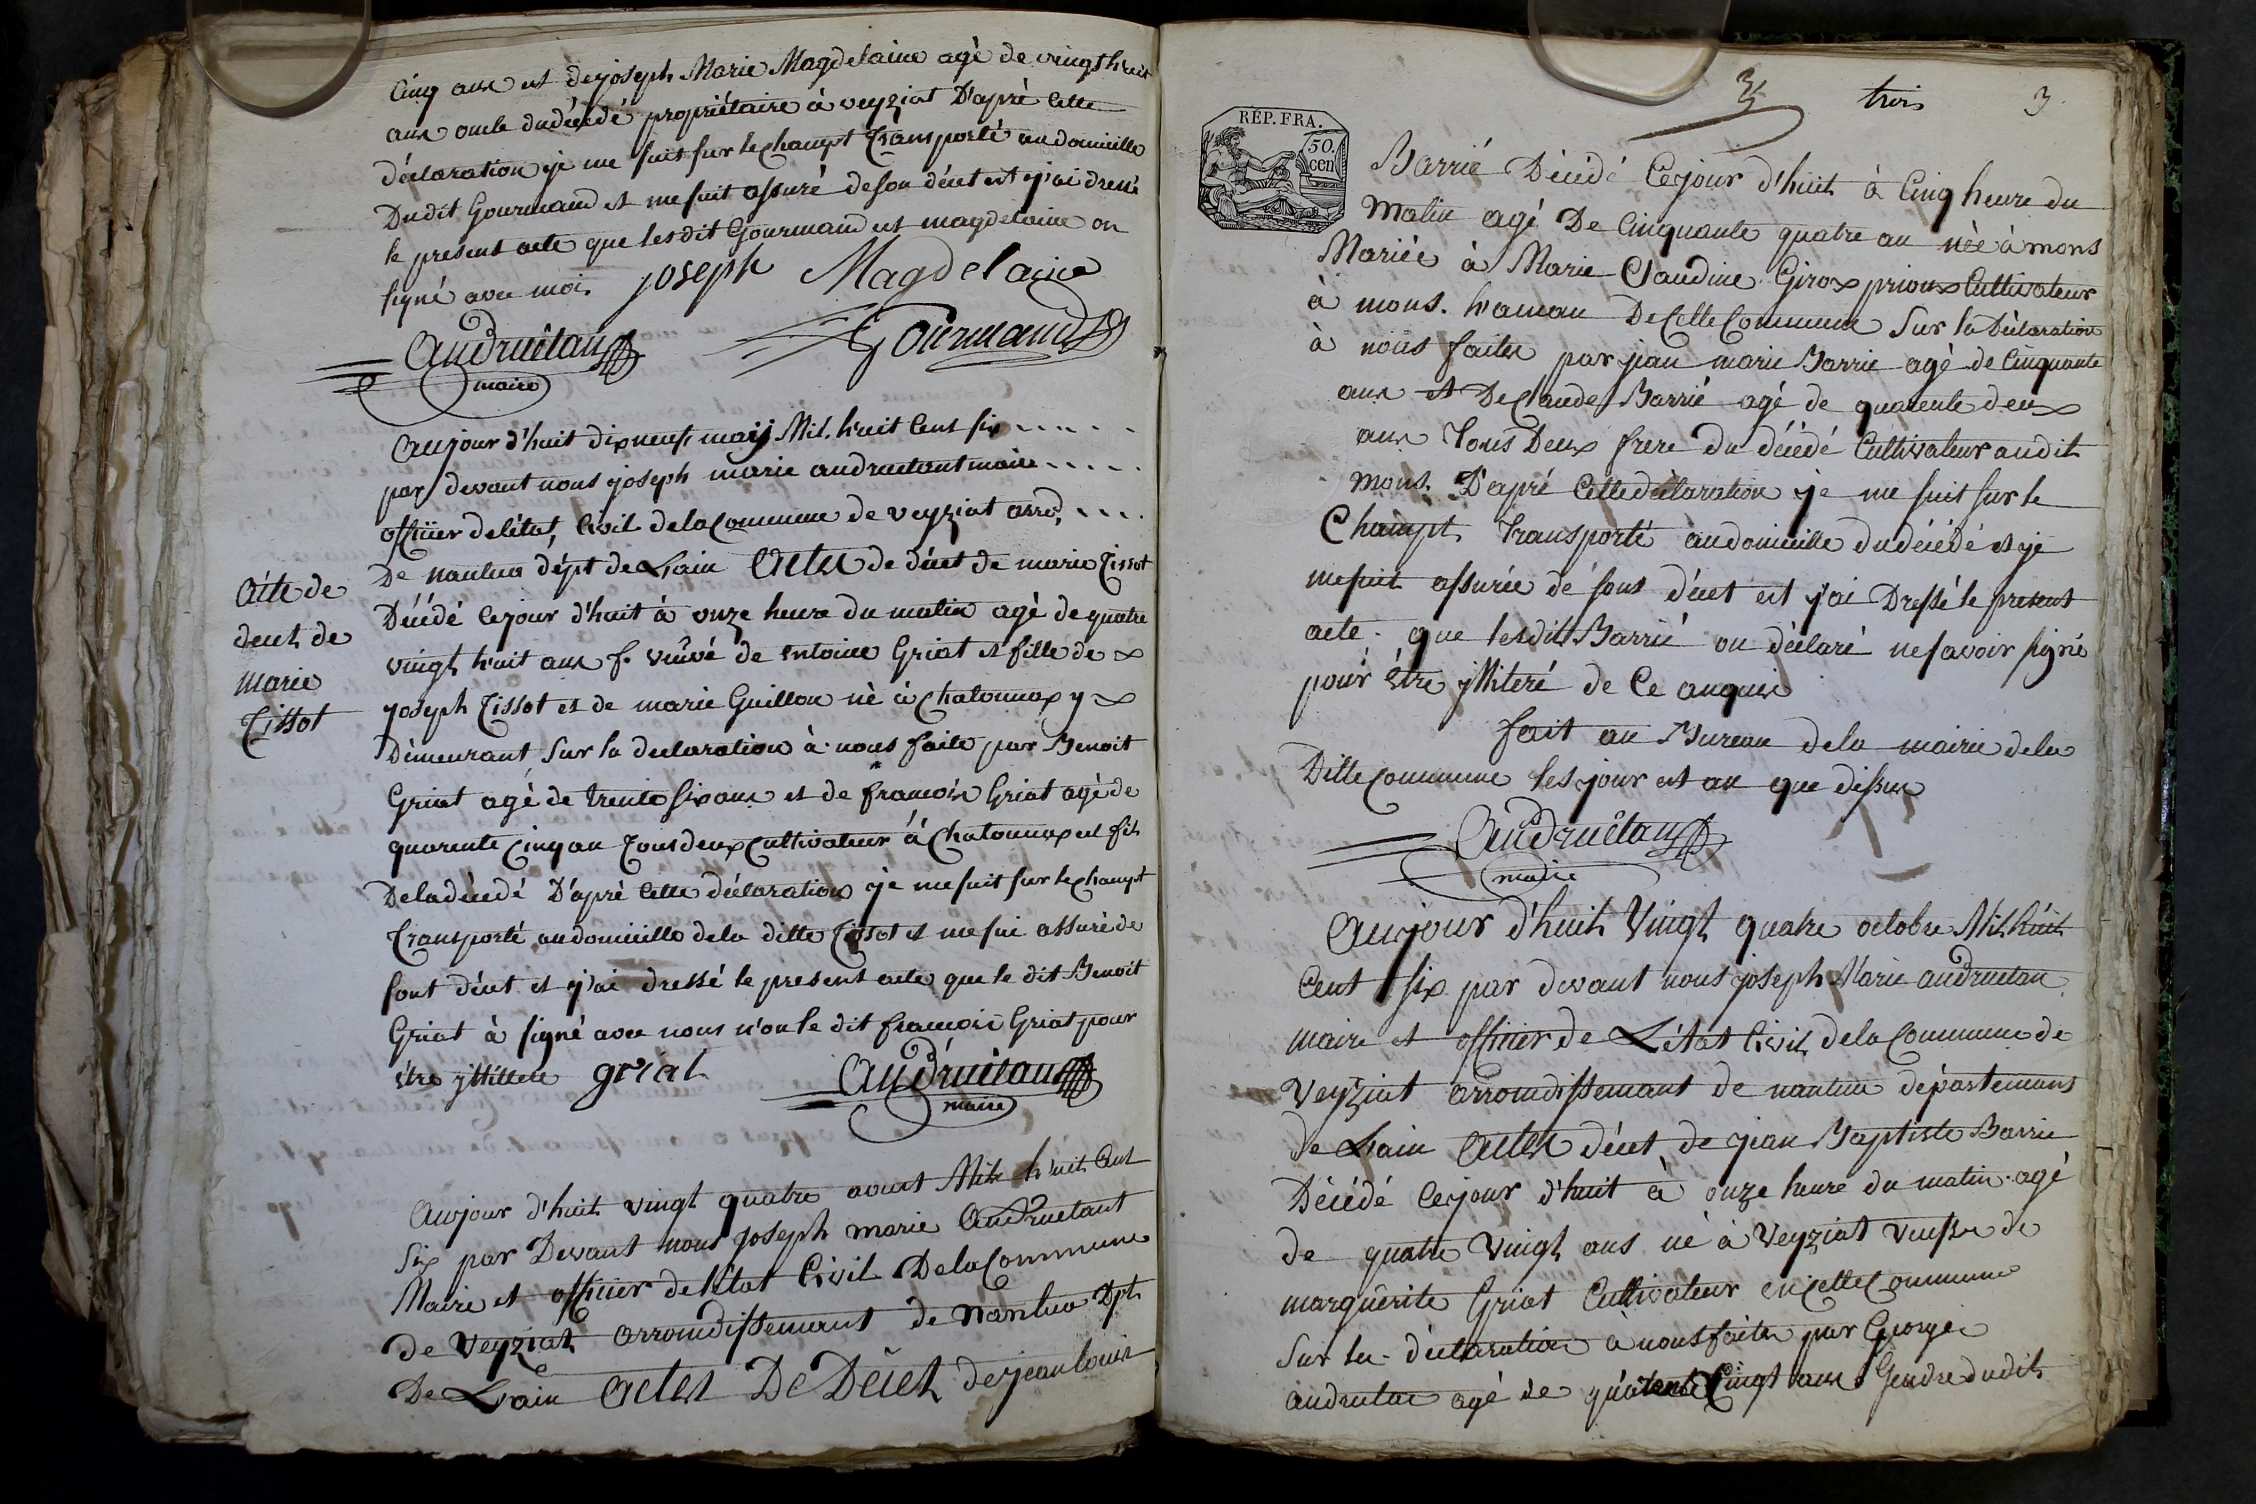 Cinq ans et de joseph Marie Magdelaine agè de vingt huit
ans oncle du décédé propriétaire à veyziat D'aprè Cette
déclaration je me suit sur le champt Transporté au domicille
Dudit Gourmand et me suit assuré de son décet et j'ai dressé
le present acte que les dit Gourmand et magdelaine on
signé avec moi. joseph Magdelaine
Andruétan Gourmand
maire
Aujour d'huit dix neuf may Mil huit Cent six
par devant nous joseph marie andruetant maire
officier de l'état Civil de la Commune de veyziat arrd.
De nantua dépt de Lain Actes de décet de marie Tissot
Décédé Ce jour d'huit à onze heure du matin agè de quatre
vingt huit ans f. veuvé de entoine Griat et fille de
joseph Tissot et de marie Guillon nè à Chatonnax y
Demeurant Sur la declaration à nous faite par Benoit
Griat agé de trente six ans et de françois Griat agè de
quarente Cinq an Tous deux Cultivateur à Chatonnax et fils
De la décedé D'aprè Cette déclaration je me suit sur le champt
Transporté au domicille de la ditte Tissot et me sui assuré de
sont décet et j'ai dressé le present acte que le dit Benoit
Griat à signé avec nous n'on le dit françois Griat pour
être yllittere griat Andruétan
maire
Acte de
decet de
Marie
Tissot
Aujour d'huit vingt quatre aoust Mil huit Cent
Six par Devant nous joseph marie Andruetant
Maire et officier de létat Civil De la Commune
de Veyziat arrondissemant de Nantua Dpt
De Lain Actes De Décet de jean louis
3 trois 3
RÉP. FRA.
50.
cen
Barrié Décédé Ce jour d'huit à Cinq heure du
Matin agé De Cinquante quatre an née à mons
Mariée à Marie Claudine Girox prioux Cultivateur
à mons. hamau De Cette Commune Sur la Déclaration
à nous faites par jean marie Barrie agè de Cinquante
ans et De Claude Barrié agé de quarente deux
ans Tous Deux frere du décédé Cultivateur audit
mons. D'apré Cette déclaration je me suit sur le
Champt Transporté au domicille du décédé et je
me suit assurée de sons décet et j'ai Dressé le present
acte. que les dit Barrié on déclaré ne savoir signé
pour être ylliteré de Ce anquis
fait au Bureau de la mairie de la
Ditte Commune les jour et an que dessus
Andruétan
maire
Aujour d'huit Vingt quatre octobre Mil huit
Cent six par devant nous joseph Marie andruetan
maire et officier de L'état Civil de la Commune de
Veyziat arrondissemant de nantua départemans
de Lain Actes décet de jean Baptiste Barrie
Décédé Ce jour d'huit à onze heure du matin agé
de quatre Vingt ans né à Veyziat veusve de
marguerite Griat Cultivateur en Cette Commune
sur la déclaration à nous faites par George
andruetan agé de quarente Cinqt ans Gendre dudit